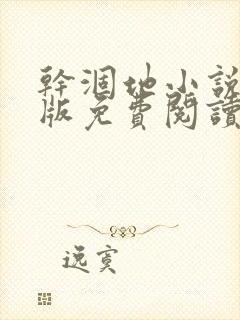 幹涸地小說
版免費閱讀
逸寞